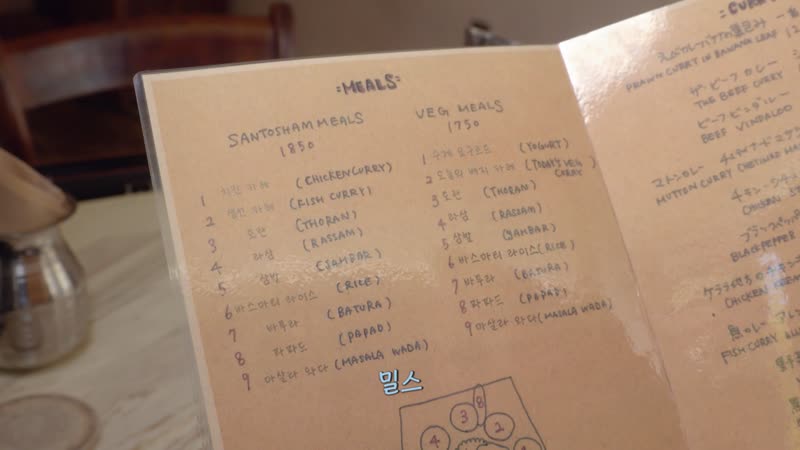 =MEALS=
SANTOSHAM MEALS
1850
1 치킨 카레 (CHICKEN CURRY)
2 생선 카레 (FISH CURRY)
3 토란 (THORAN)
4 라삼 (RASSAM)
5 삼발 (SAMBAR)
6 바스마티 라이스 (RICE)
7 바투라 (BATURA)
8 파파드 (PAPAD)
9 마살라 와다 (MASALA WADA)
VEG MEALS
1750
1 수제 요구르트 (YOGURT)
2 오늘의 베지 카레 (TODAY'S VEG CURRY)
3 토란 (THORAN)
4 라삼 (RASSAM)
5 삼발 (SAMBAR)
6 바스마티 라이스 (RICE)
7 바투라 (BATURA)
8 파파드 (PAPAD)
9 마살라 와다 (MASALA WADA)
밀스
3
8
2
4
PRAWN CURRY IN BANANA LEAF
ザ・ビーフ カレー
THE BEEF CURRY
ビーフ ビンダルー
BEEF VINDALOO
マトンカレー チェティナード
MUTTON CURRY CHETINAD
チキン
CHICKEN
ブラックペッパー
BLACKPEPPER
チキン
CHICKEN
魚のカレー
FISH CURRY